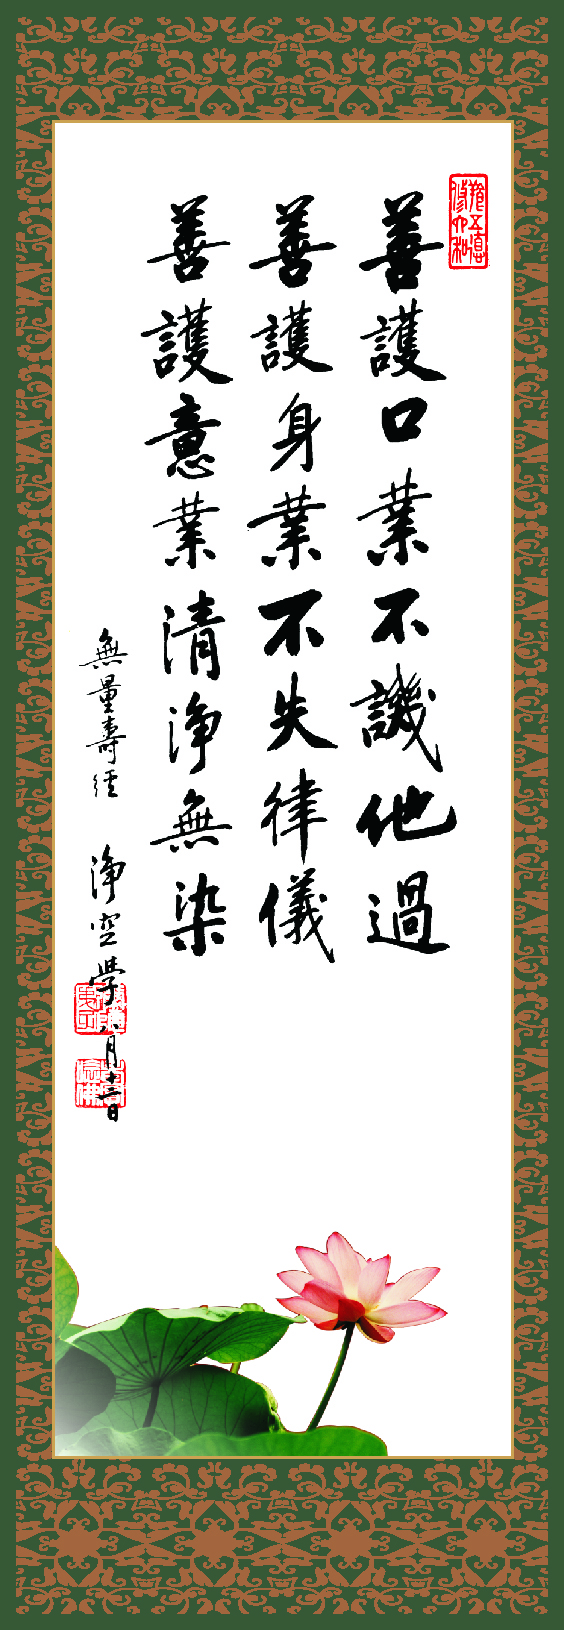 善護口業不譏他過
善護身業不失律儀
善護意業清淨無染
無量壽經
淨空學 八月十二日